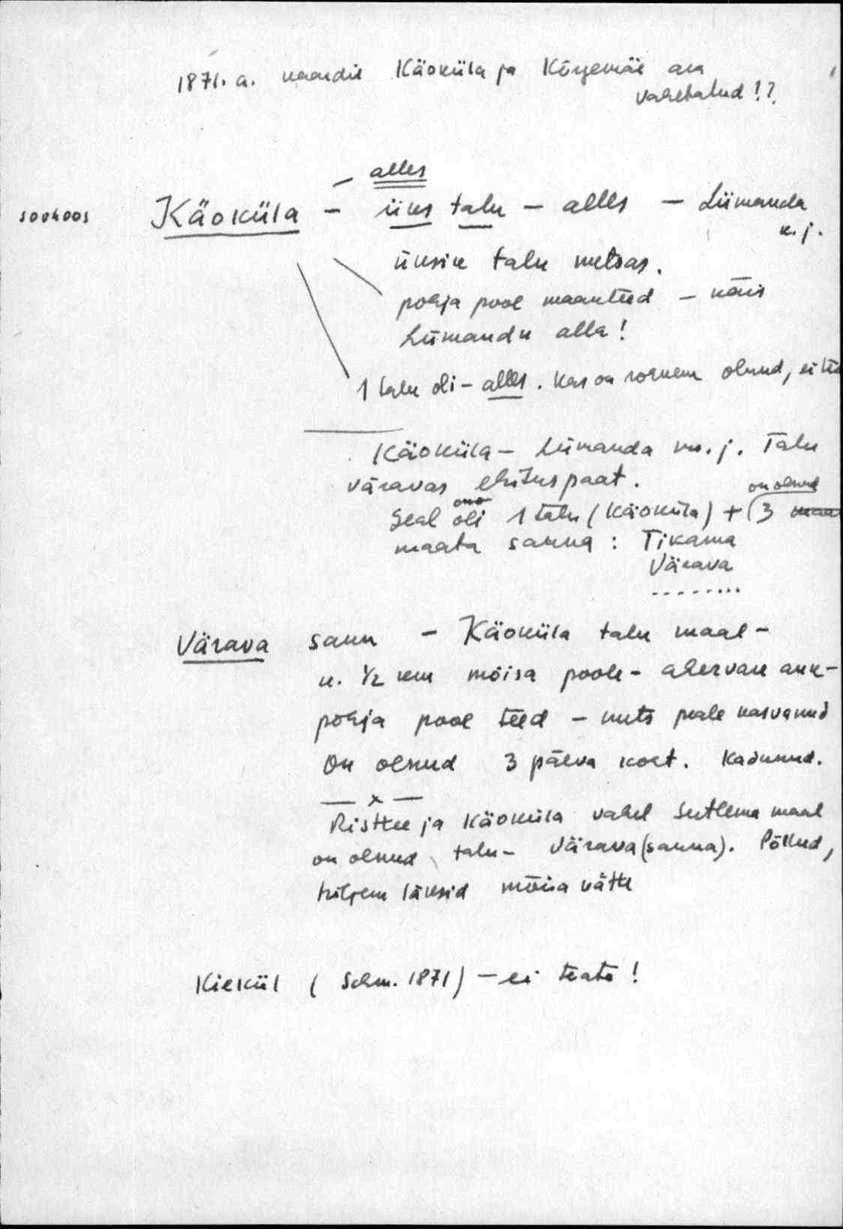 1871. a. kaardil Käoküla ja Kõrgemäe ära
vahetatud!?
– alles
sookoos Käoküla – üks talu – alles – Liimanda
k. j.
üksik talu metsas.
põhja pool maanteed – käis
Liimandu alla!
1 talu oli – alles. Kas on rohkem olnud, ei tea
Käoküla – Liimanda m. j. Talu
väravas ehituspaat.
on olnud
Seal oli 1 talu (Käoküla) + (3
maata sauna: Tikama
Värava
........
Värava saun – Käoküla talu maal –
u. 1/2 km mõisa poole – ahervare auk –
põhja pool teed – mets peale kasvanud
On olnud 3 päeva koht. Kadunud.
— x —
Risttee ja Käoküla vahel maal
on olnud talu – Värava (sauna). Põllud,
hiljem läksid mõisa kätte
Kiekül (Schm. 1871) – ei teata!